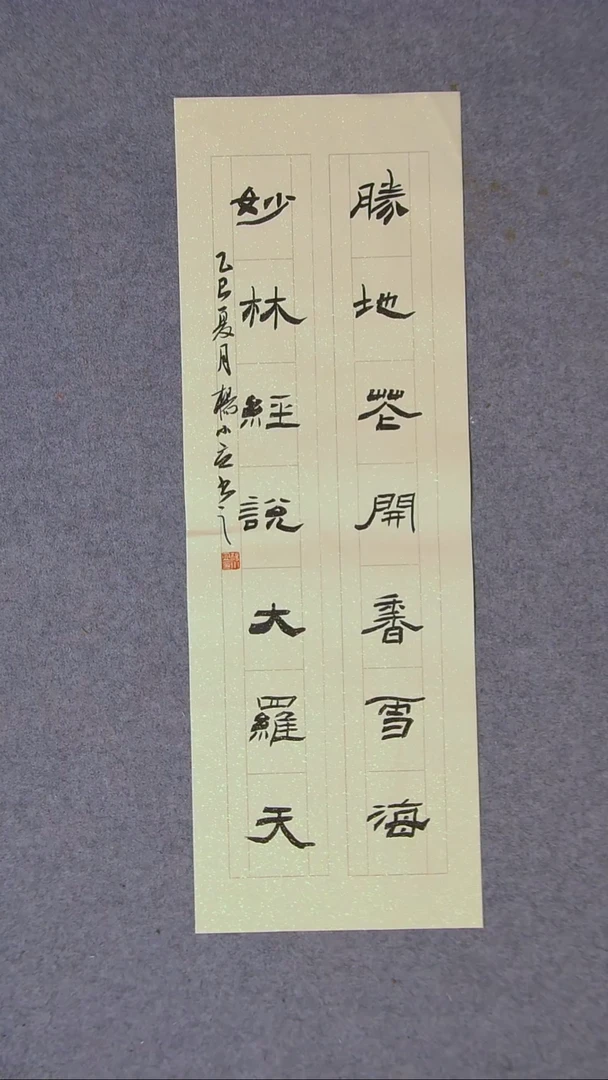 勝地花開香雪海
妙林經說大羅天
乙巳夏月楊小立书